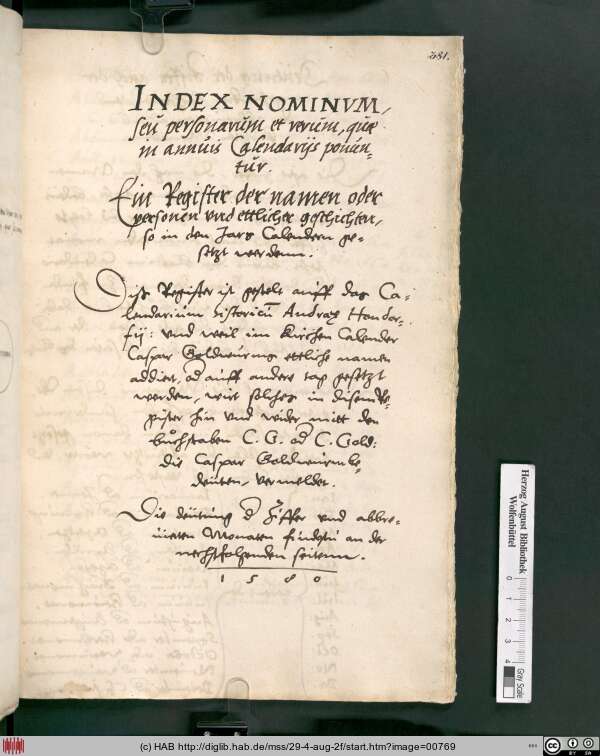 381.
INDEX NOMINVM,
seu personarum et rerum, quæ
in annuis Calendarijs ponun-
tur.
Ein Register der namen oder
personen vnd ettlicher geschichten,
so in den Jars Calendern ge-
setzt werdenn.
Diß Register ist gestelt auff das Ca-
lendarium Historicũ Andreæ Hondor-
fij: vnd weil im Kirchen Calender
Caspar Goldwurms ettliche namen
addiert, od auff andere tag gesetzt
werden, wirt solches in disem Re-
gister hin vnd wider mitt den
buchstaben C. G. od C. Gold:
die Caspar Goldwurm be-
deuten, vermeldet.
Die deutung d Ziffer vnd abbre-
uierten Monaten findestu an der
nechstfolgenden seitenn.
1 5 8 0
Herzog August Bibliothek
Wolfenbüttel
0 1 2 3 4
Gray Scale
(c) HAB http://diglib.hab.de/mss/29-4-aug-2f/start.htm?image=00769
cc BY SA